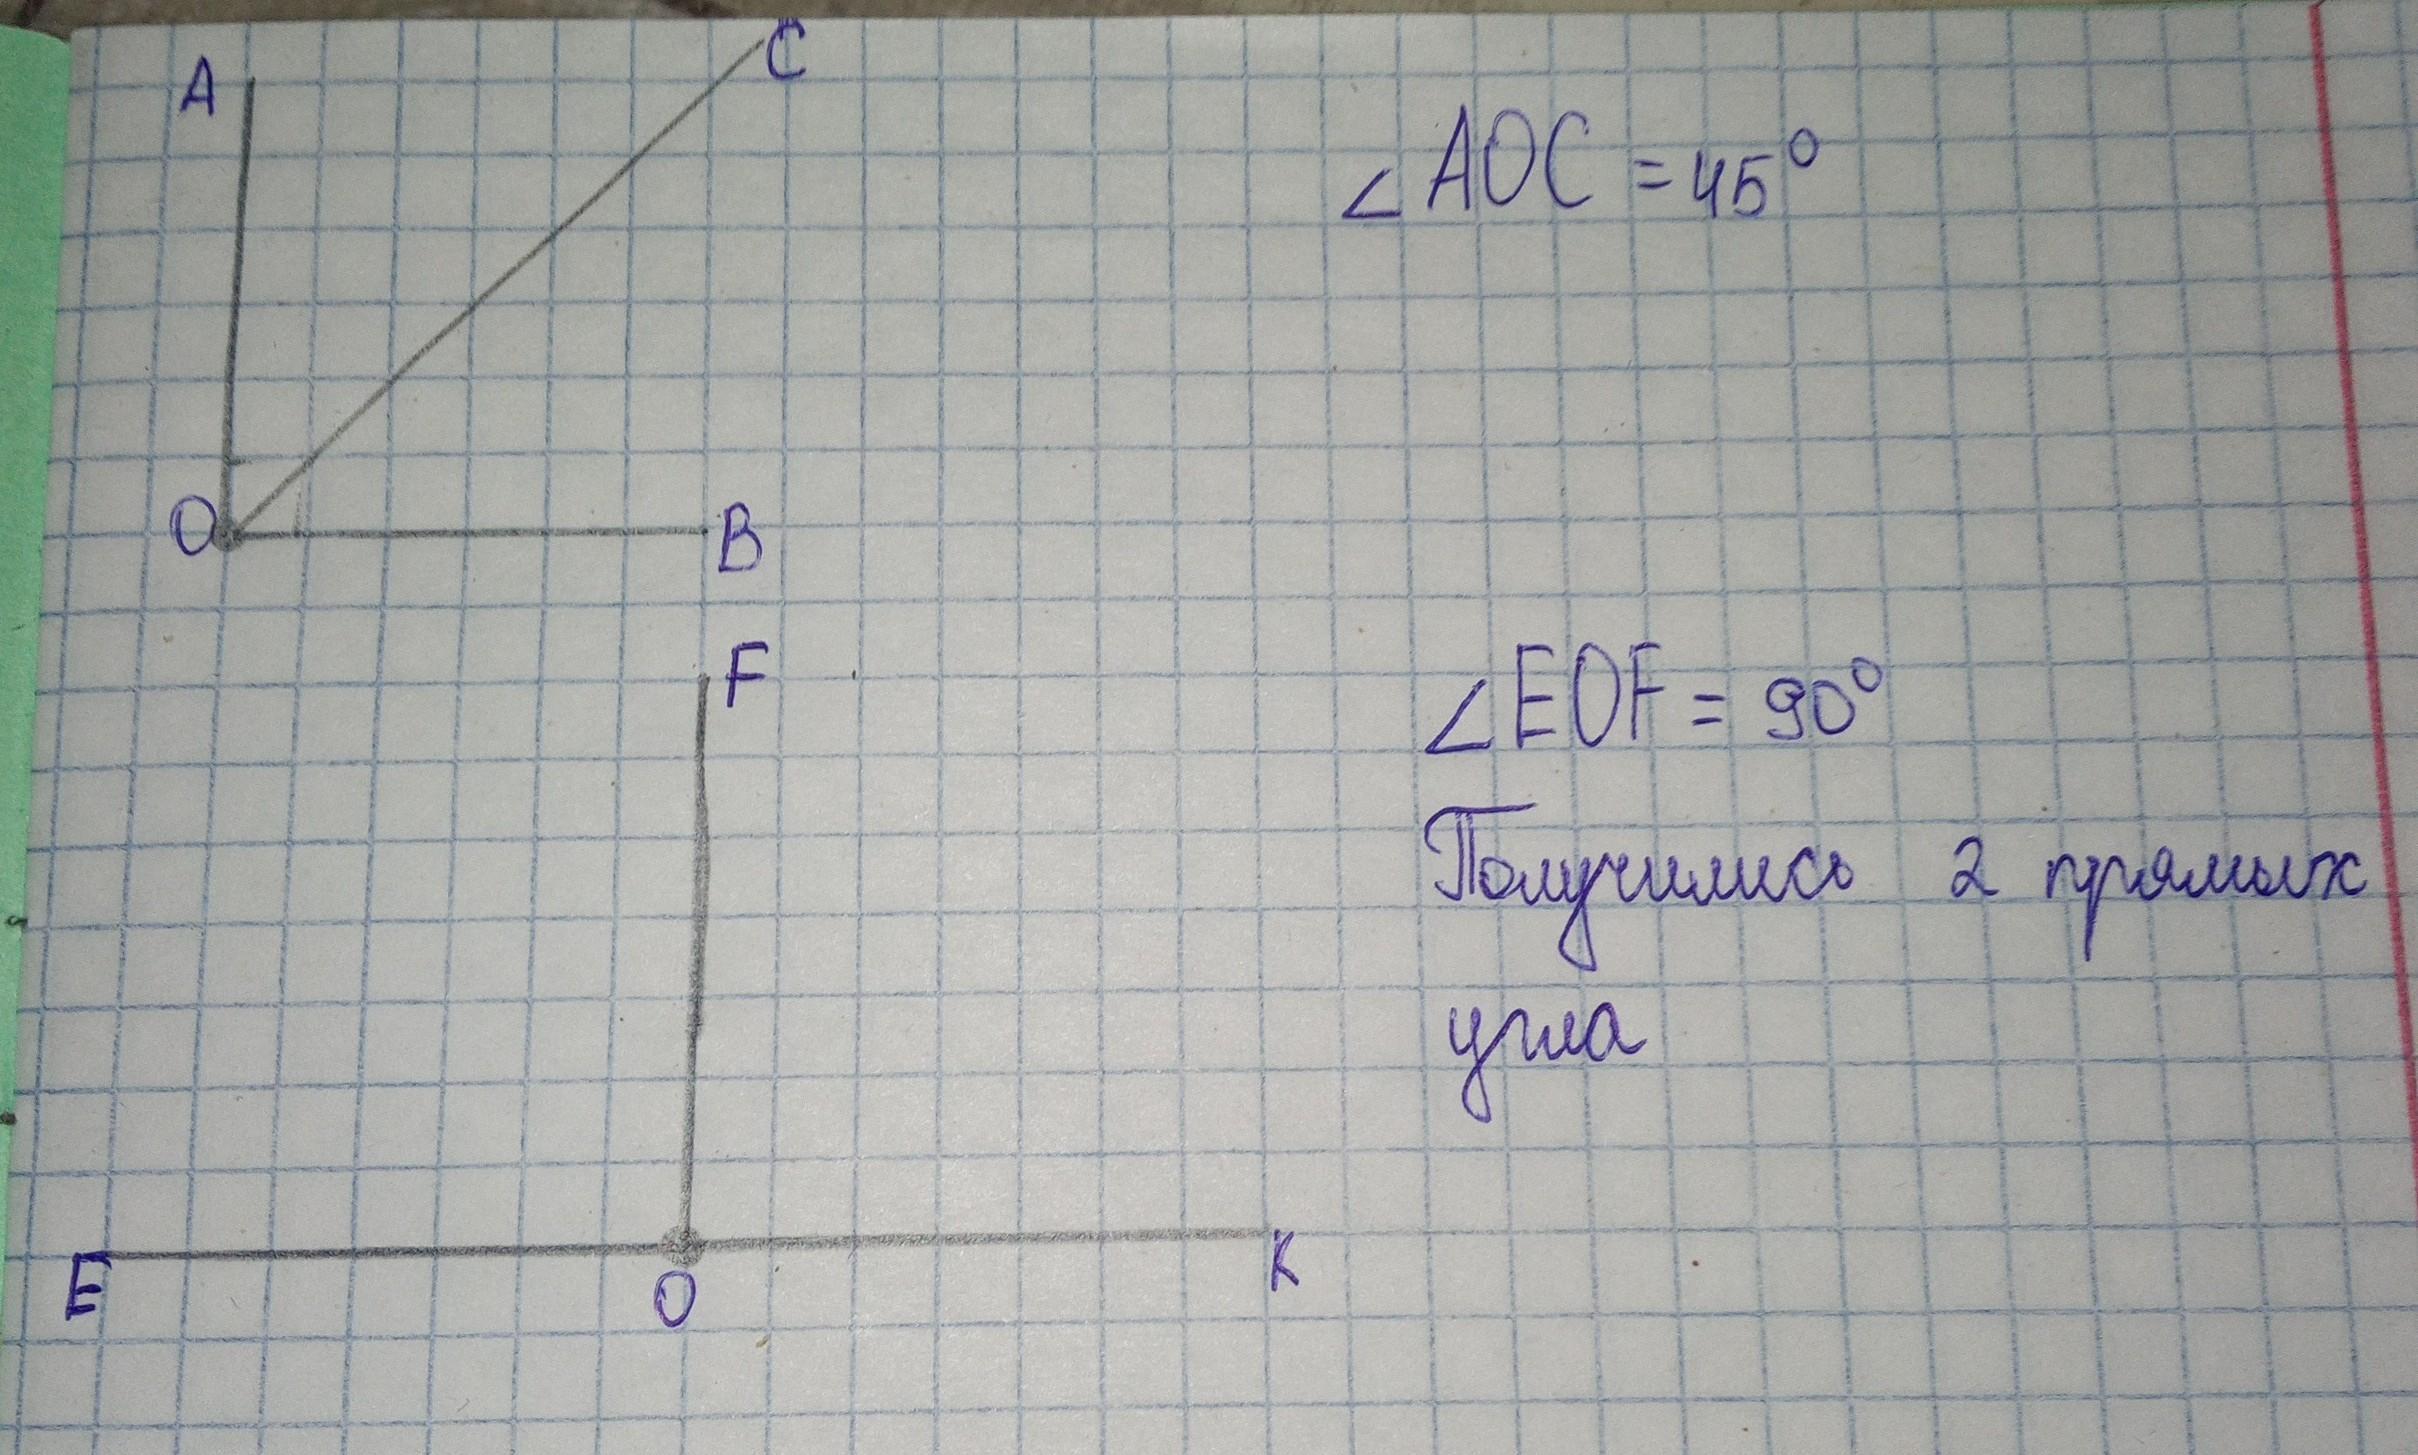 A
C
∠AOC = 45°
O
B
F
∠EOF = 90°
Получились 2 прямых
угла
E
O
K